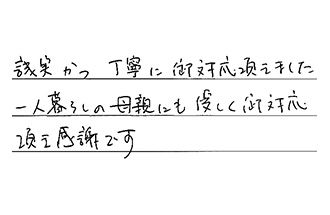 誠実かつ 丁寧に御対応頂きました
一人暮らしの母親にも優しく御対応
頂き感謝です